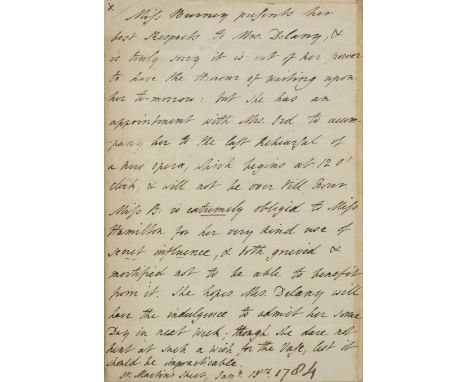 x
Miss Burney presents her
best Respects to Mrs. Delany, &
is truly sorry it is out of her power
to have the Honour of waiting upon
her to-morrow: but she has an
appointment with Mrs. Ord to accom-
pany her to the last Rehearsal of
a new opera, which begins at 12 o'
clock, & will not be over till
Miss B: is extremely obliged to Miss
Hamilton for her very kind use of
secret influence, & both grieved &
mortified not to be able to benefit
from it. She hopes Mrs. Delany will
have the indulgence to admit her some
Day in next week. though she dare not
hint at such a wish for the Vase, lest it
should be impracticable.
St. Martin's Street, Jany. 1784